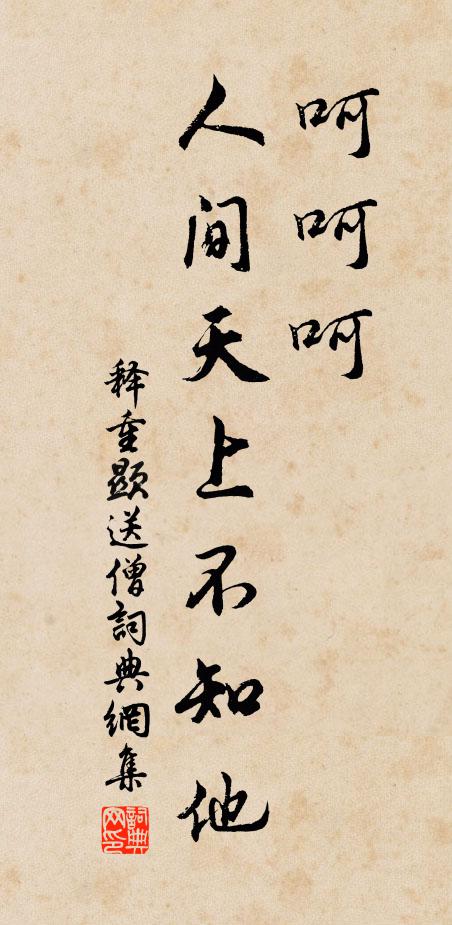 呵呵呵
人间天上不知他
释重显送僧詞典網集
詞典
网印